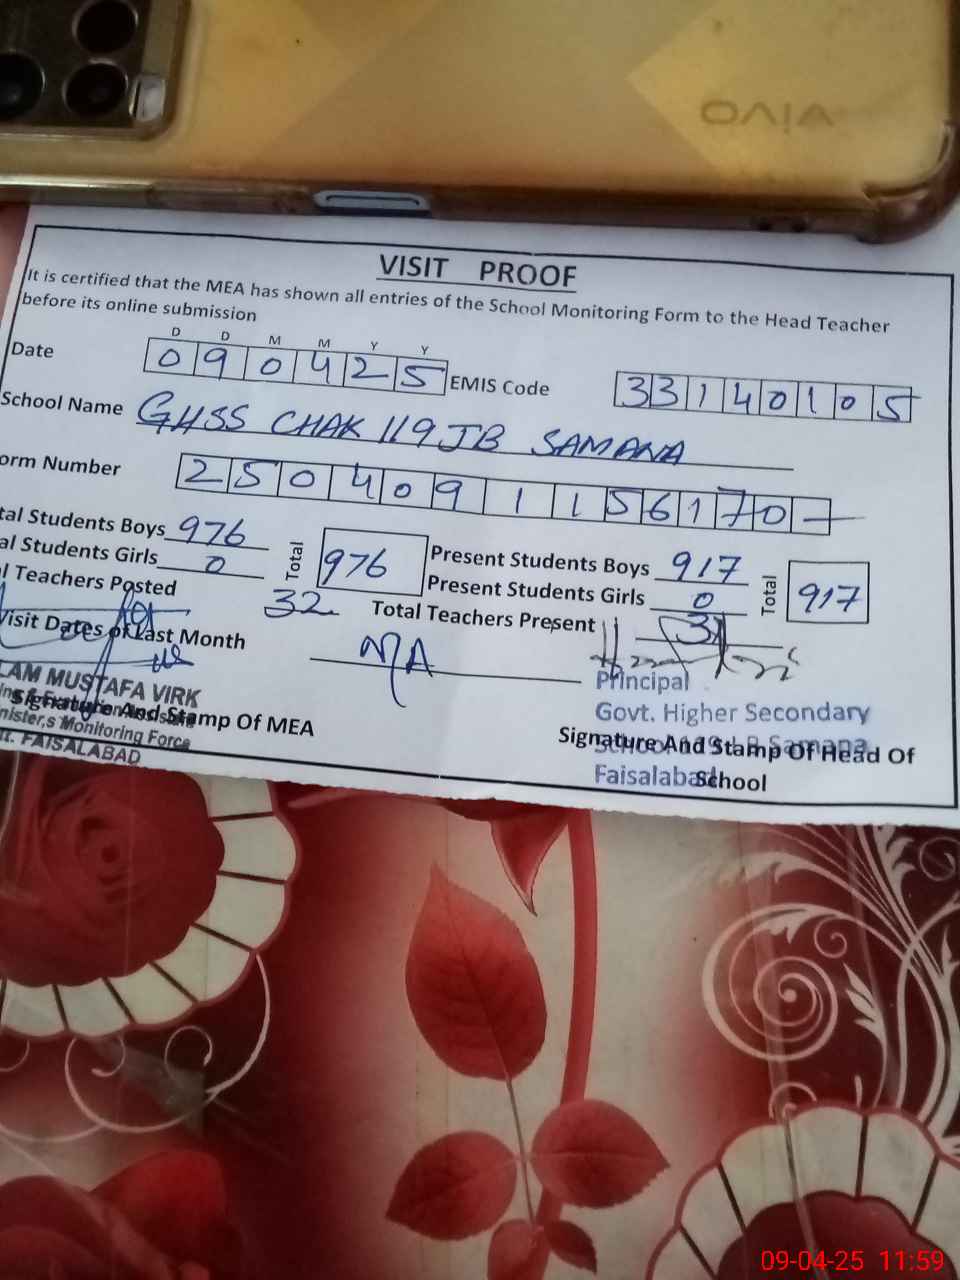 VIVO
VISIT PROOF
It is certified that the MEA has shown all entries of the School Monitoring Form to the Head Teacher
before its online submission
D D M M Y Y
Date 0 9 0 4 2 5 EMIS Code 3 3 1 4 0 1 0 5
School Name GHSS CHAK 119 JB SAMANA
orm Number 2 5 0 4 0 9 1 1 5 6 1 7 0 -
tal Students Boys 976 Total 976 Present Students Boys 917 Total 917
al Students Girls 0 Present Students Girls 0
l Teachers Posted 32 Total Teachers Present 31
Visit Dates of Last Month N/A
LAM MUSTAFA VIRK
Principal
Govt. Higher Secondary
Signature And Stamp Of MEA
nister,s Monitoring Force
tt. FAISALABAD
Signature And Stamp Of Head Of
School
Samana
Faisalabad
09-04-25 11:59